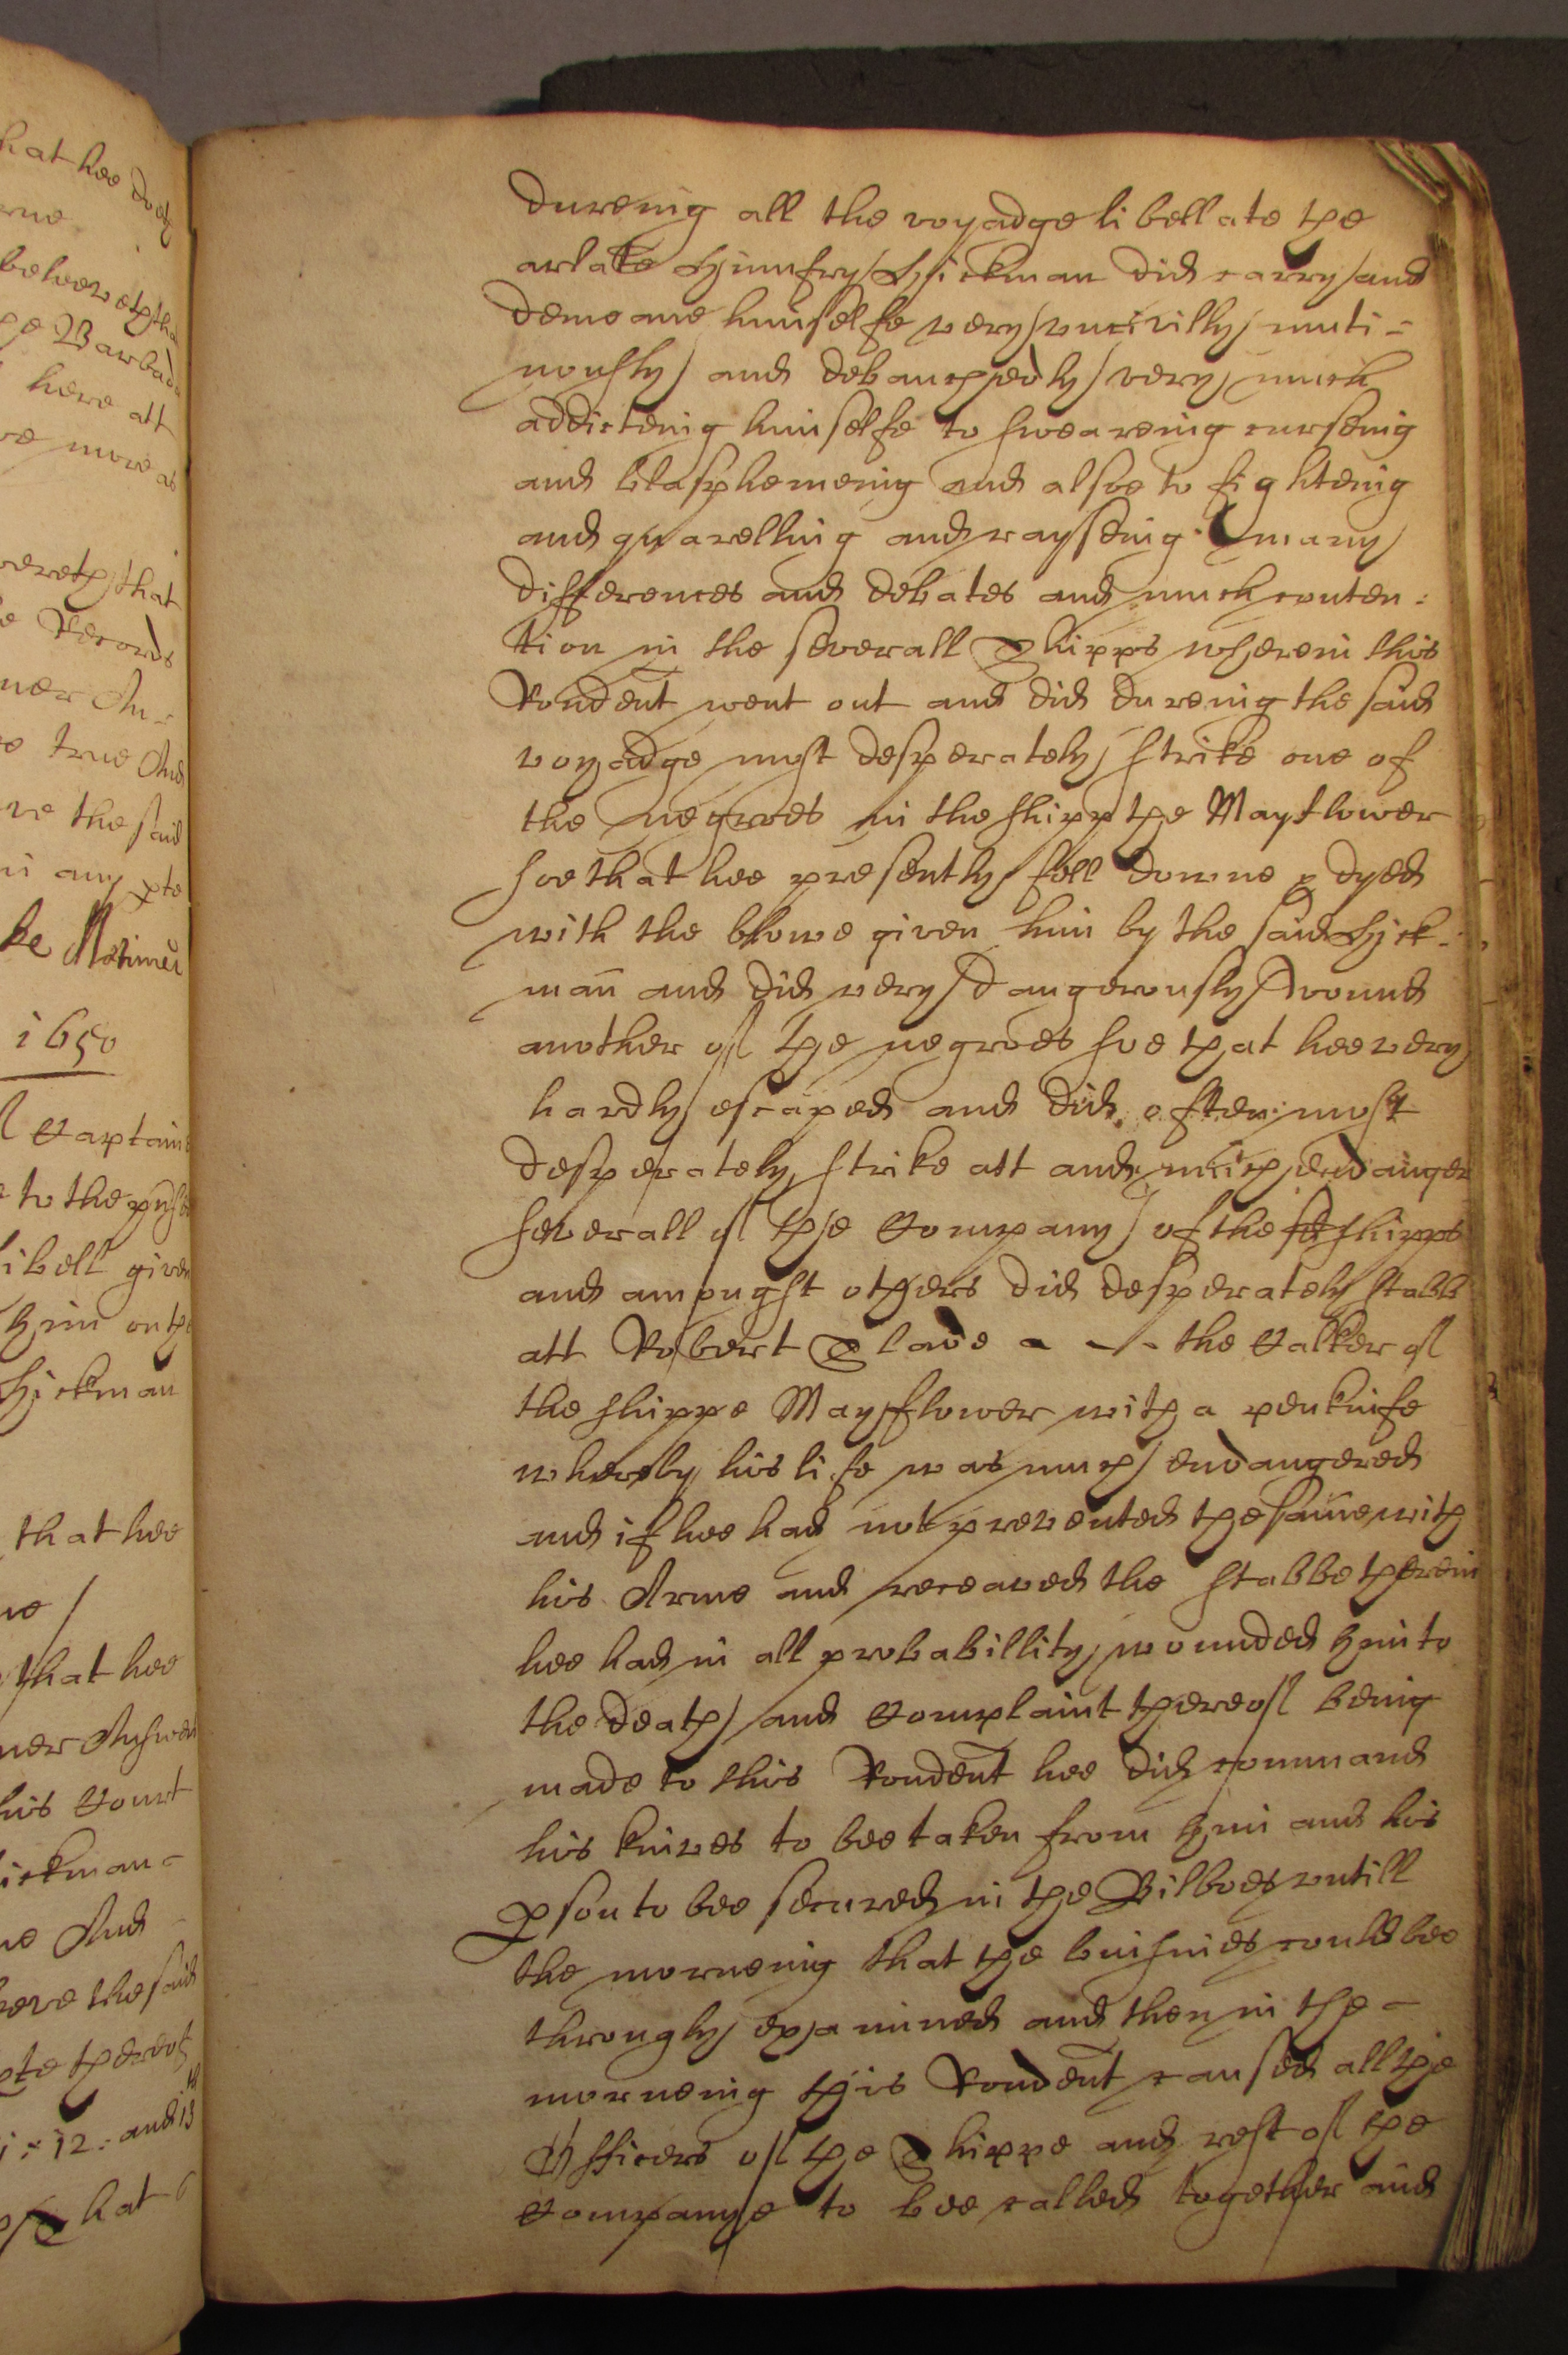 hat hee doth
rue
beleeveth the
pe Barbad
here att
re more as
vereth that
e Records
ner An-
e true And
ve the said
in any pte
ke Mortimer
1650
Captaine
e to the
ibell given
him on the
Hickman
that hee
ne
that hee
ner Answer
his Court
ickman -
ne And
leeve the said
pte thereof
i : 12 : and 13
hat
dureing all the voyadge libellate the
arlate Humfry Hickman did carry and
demeane himselfe very uncivilly muti=
nously and debauchedly very much
addicteing himselfe to sweareing curseing
and blasphemeing and alsoe to fighteing
and quarelling and rayseing many
differences and debates and much conten:
tion in the severall Shipps wherein this
Rondent went out and did dureing the said
voyadge most desperately strike one of
the negroes in the shipp the Mayflower
soe that hee presently fell downe & dyed
with the blowe given him by the said Hick-
man and did very dangerously wound
another of the negroes soe that hee very
hardly escaped and did often most
desperately strike att and much endainger
severall of the Company of the sd shipps
and amoungst others did desperately stabb
att Robert Slade - - - the Calker of
the shippe Mayflower with a penknife
whereby his life was much endangered
and if hee had not prevented the same with
his Arme and receaved the stabbe therein
hee had in all probabillity wounded him to
the death and Complaint thereof being
made to this Rondent hee did command
his knives to bee taken from him and his
pson to bee secured in the Bilboes untill
the morneing that the buisnies could bee
throughly examined and then in the -
morneing this Rondent caused all the
Officers of the Shippe and rest of the
Companye to bee called together and